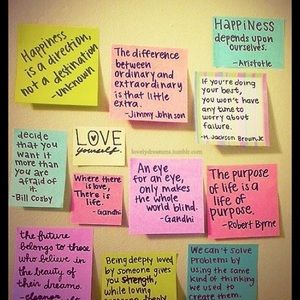 Happiness
is a direction,
not a destination
-unknown
The difference
between
ordinary and
extraordinary
is that little
extra.
-Jimmy Johnson
HAPPINESS
depends upon
ourselves.
-Aristotle
If you're doing
your best,
you won't have
any time to
worry about
failure.
-H. Jackson Brown, Jr.
decide
that you
want it
more than
you are
afraid of
it.
-Bill Cosby
LOVE
yourself.
lovelydreamsss.tumblr.com
Where there
is love,
There is
life.
-Gandhi
An eye
for an eye,
only makes
the whole
world blind.
-Gandhi
The purpose
of life is a
life of
purpose.
-Robert Byrne
the future
belongs to those
who believe in
the beauty of
their dreams.
-eleanor
Being deeply loved
by someone gives
you strength,
while loving
someone deeply
We can't solve
problems by
using the same
kind of thinking
we used to
create them.